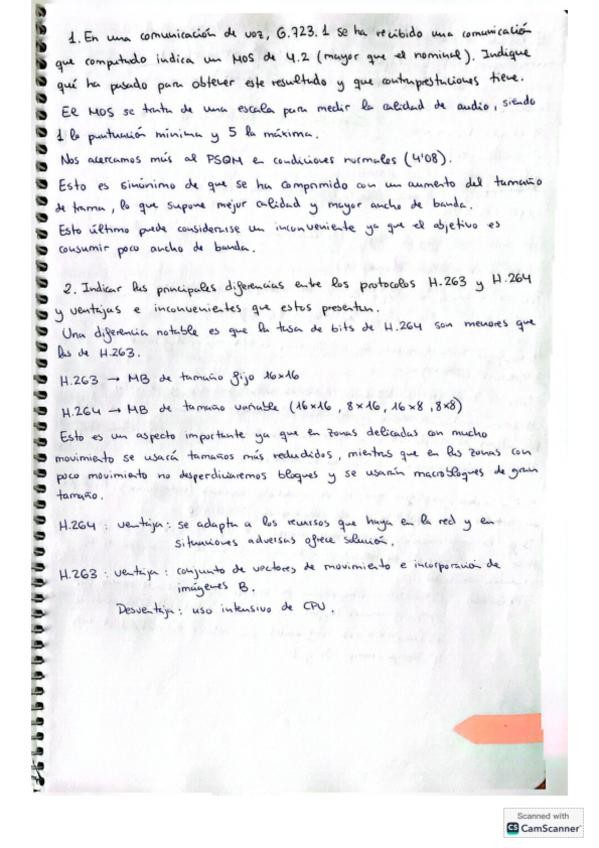 1. En una comunicación de voz, G.723.1 se ha recibido una comunicación
que computado indica un MOS de 4.2 (mayor que el nominal). Indique
qué ha pasado para obtener este resultado y que contraprestaciones tiene.
El MOS se trata de una escala para medir la calidad de audio, siendo
1 la puntuación mínima y 5 la máxima.
Nos acercamos más al PSQM en condiciones normales (4'08).
Esto es sinónimo de que se ha comprimido con un aumento del tamaño
de trama, lo que supone mejor calidad y mayor ancho de banda.
Esto último puede considerarse un inconveniente ya que el objetivo es
consumir poco ancho de banda.
2. Indicar las principales diferencias entre los protocolos H.263 y H.264
y ventajas e inconvenientes que estos presentan.
Una diferencia notable es que la tasa de bits de H.264 son menores que
las de H.263.
H.263 → MB de tamaño fijo 16x16
H.264 → MB de tamaño variable (16x16, 8x16, 16x8, 8x8)
Esto es un aspecto importante ya que en zonas delicadas con mucho
movimiento se usará tamaños más redudidos, mientas que en las zonas con
poco movimiento no desperdiciaremos bloques y se usarán macrobloques de gran
tamaño.
H.264 : ventaja : se adapta a los recursos que haya en la red y en
situaciones adversas ofrece solución.
H.263 : ventaja : conjunto de vectores de movimiento e incorporación de
imágenes B.
Desventaja : uso intensivo de CPU.
Scanned with
CS CamScanner